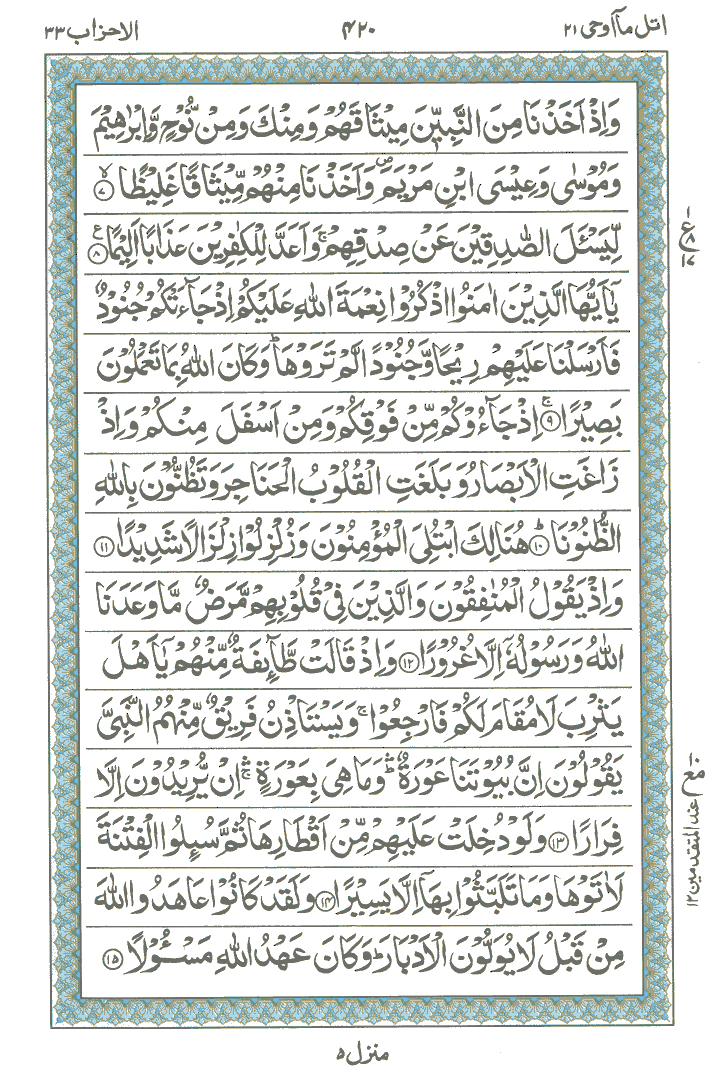 اتل مآ اوحی ۲۱
۴۲۰
الاحزاب ۳۳
وَاِذْ اَخَذْنَا مِنَ النَّبِيّٖنَ مِيْثَاقَهُمْ وَمِنْكَ وَمِنْ نُّوْحٍ وَّاِبْرٰهِيْمَ
وَمُوْسٰى وَعِيْسَى ابْنِ مَرْيَمَ ۪ وَاَخَذْنَا مِنْهُمْ مِّيْثَاقًا غَلِيْظًا ۙ﴿۷﴾
لِّيَسْـَٔلَ الصّٰدِقِيْنَ عَنْ صِدْقِهِمْ ۚ وَاَعَدَّ لِلْكٰفِرِيْنَ عَذَابًا اَلِيْمًا ﴿۸﴾ ع
يٰۤاَيُّهَا الَّذِيْنَ اٰمَنُوا اذْكُرُوْا نِعْمَةَ اللّٰهِ عَلَيْكُمْ اِذْ جَآءَتْكُمْ جُنُوْدٌ
فَاَرْسَلْنَا عَلَيْهِمْ رِيْحًا وَّجُنُوْدًا لَّمْ تَرَوْهَا ؕ وَكَانَ اللّٰهُ بِمَا تَعْمَلُوْنَ
بَصِيْرًا ۚ﴿۹﴾ اِذْ جَآءُوْكُمْ مِّنْ فَوْقِكُمْ وَمِنْ اَسْفَلَ مِنْكُمْ وَاِذْ
زَاغَتِ الْاَبْصَارُ وَبَلَغَتِ الْقُلُوْبُ الْحَنَاجِرَ وَتَظُنُّوْنَ بِاللّٰهِ
الظُّنُوْنَا ؕ﴿۱۰﴾ هُنَالِكَ ابْتُلِىَ الْمُؤْمِنُوْنَ وَزُلْزِلُوْا زِلْزَالًا شَدِيْدًا ﴿۱۱﴾
وَاِذْ يَقُوْلُ الْمُنٰفِقُوْنَ وَالَّذِيْنَ فِىْ قُلُوْبِهِمْ مَّرَضٌ مَّا وَعَدَنَا
اللّٰهُ وَرَسُوْلُهٗۤ اِلَّا غُرُوْرًا ﴿۱۲﴾ وَاِذْ قَالَتْ طَّآئِفَةٌ مِّنْهُمْ يٰۤاَهْلَ
يَثْرِبَ لَا مُقَامَ لَكُمْ فَارْجِعُوْا ۚ وَيَسْتَاْذِنُ فَرِيْقٌ مِّنْهُمُ النَّبِىَّ
يَقُوْلُوْنَ اِنَّ بُيُوْتَنَا عَوْرَةٌ ۛؕ وَمَا هِىَ بِعَوْرَةٍ ۛۚ اِنْ يُّرِيْدُوْنَ اِلَّا
فِرَارًا ﴿۱۳﴾ وَلَوْ دُخِلَتْ عَلَيْهِمْ مِّنْ اَقْطَارِهَا ثُمَّ سُئِلُوا الْفِتْنَةَ
لَاٰتَوْهَا وَمَا تَلَبَّثُوْا بِهَاۤ اِلَّا يَسِيْرًا ﴿۱۴﴾ وَلَقَدْ كَانُوْا عَاهَدُوا اللّٰهَ
مِنْ قَبْلُ لَا يُوَلُّوْنَ الْاَدْبَارَ ؕ وَكَانَ عَهْدُ اللّٰهِ مَسْـُٔوْلًا ﴿۱۵﴾
ع
مع
عند المتقدمین ۱۲
منزل ۵